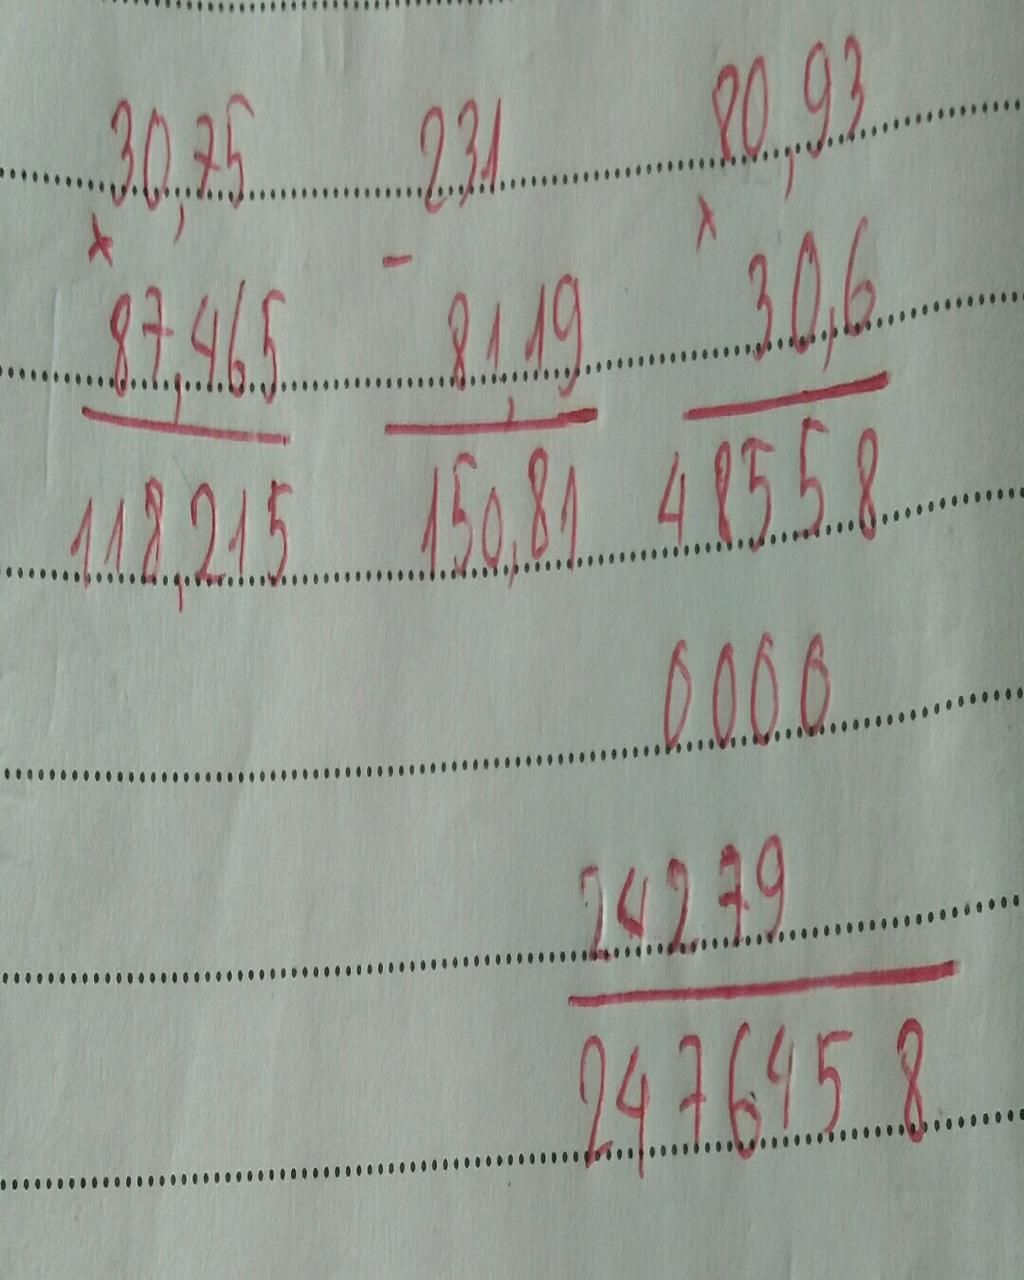 30,75 231 80,93
x - x
87,465 81,19 30,6
118,215 150,81 48558
0000
24279
2476458